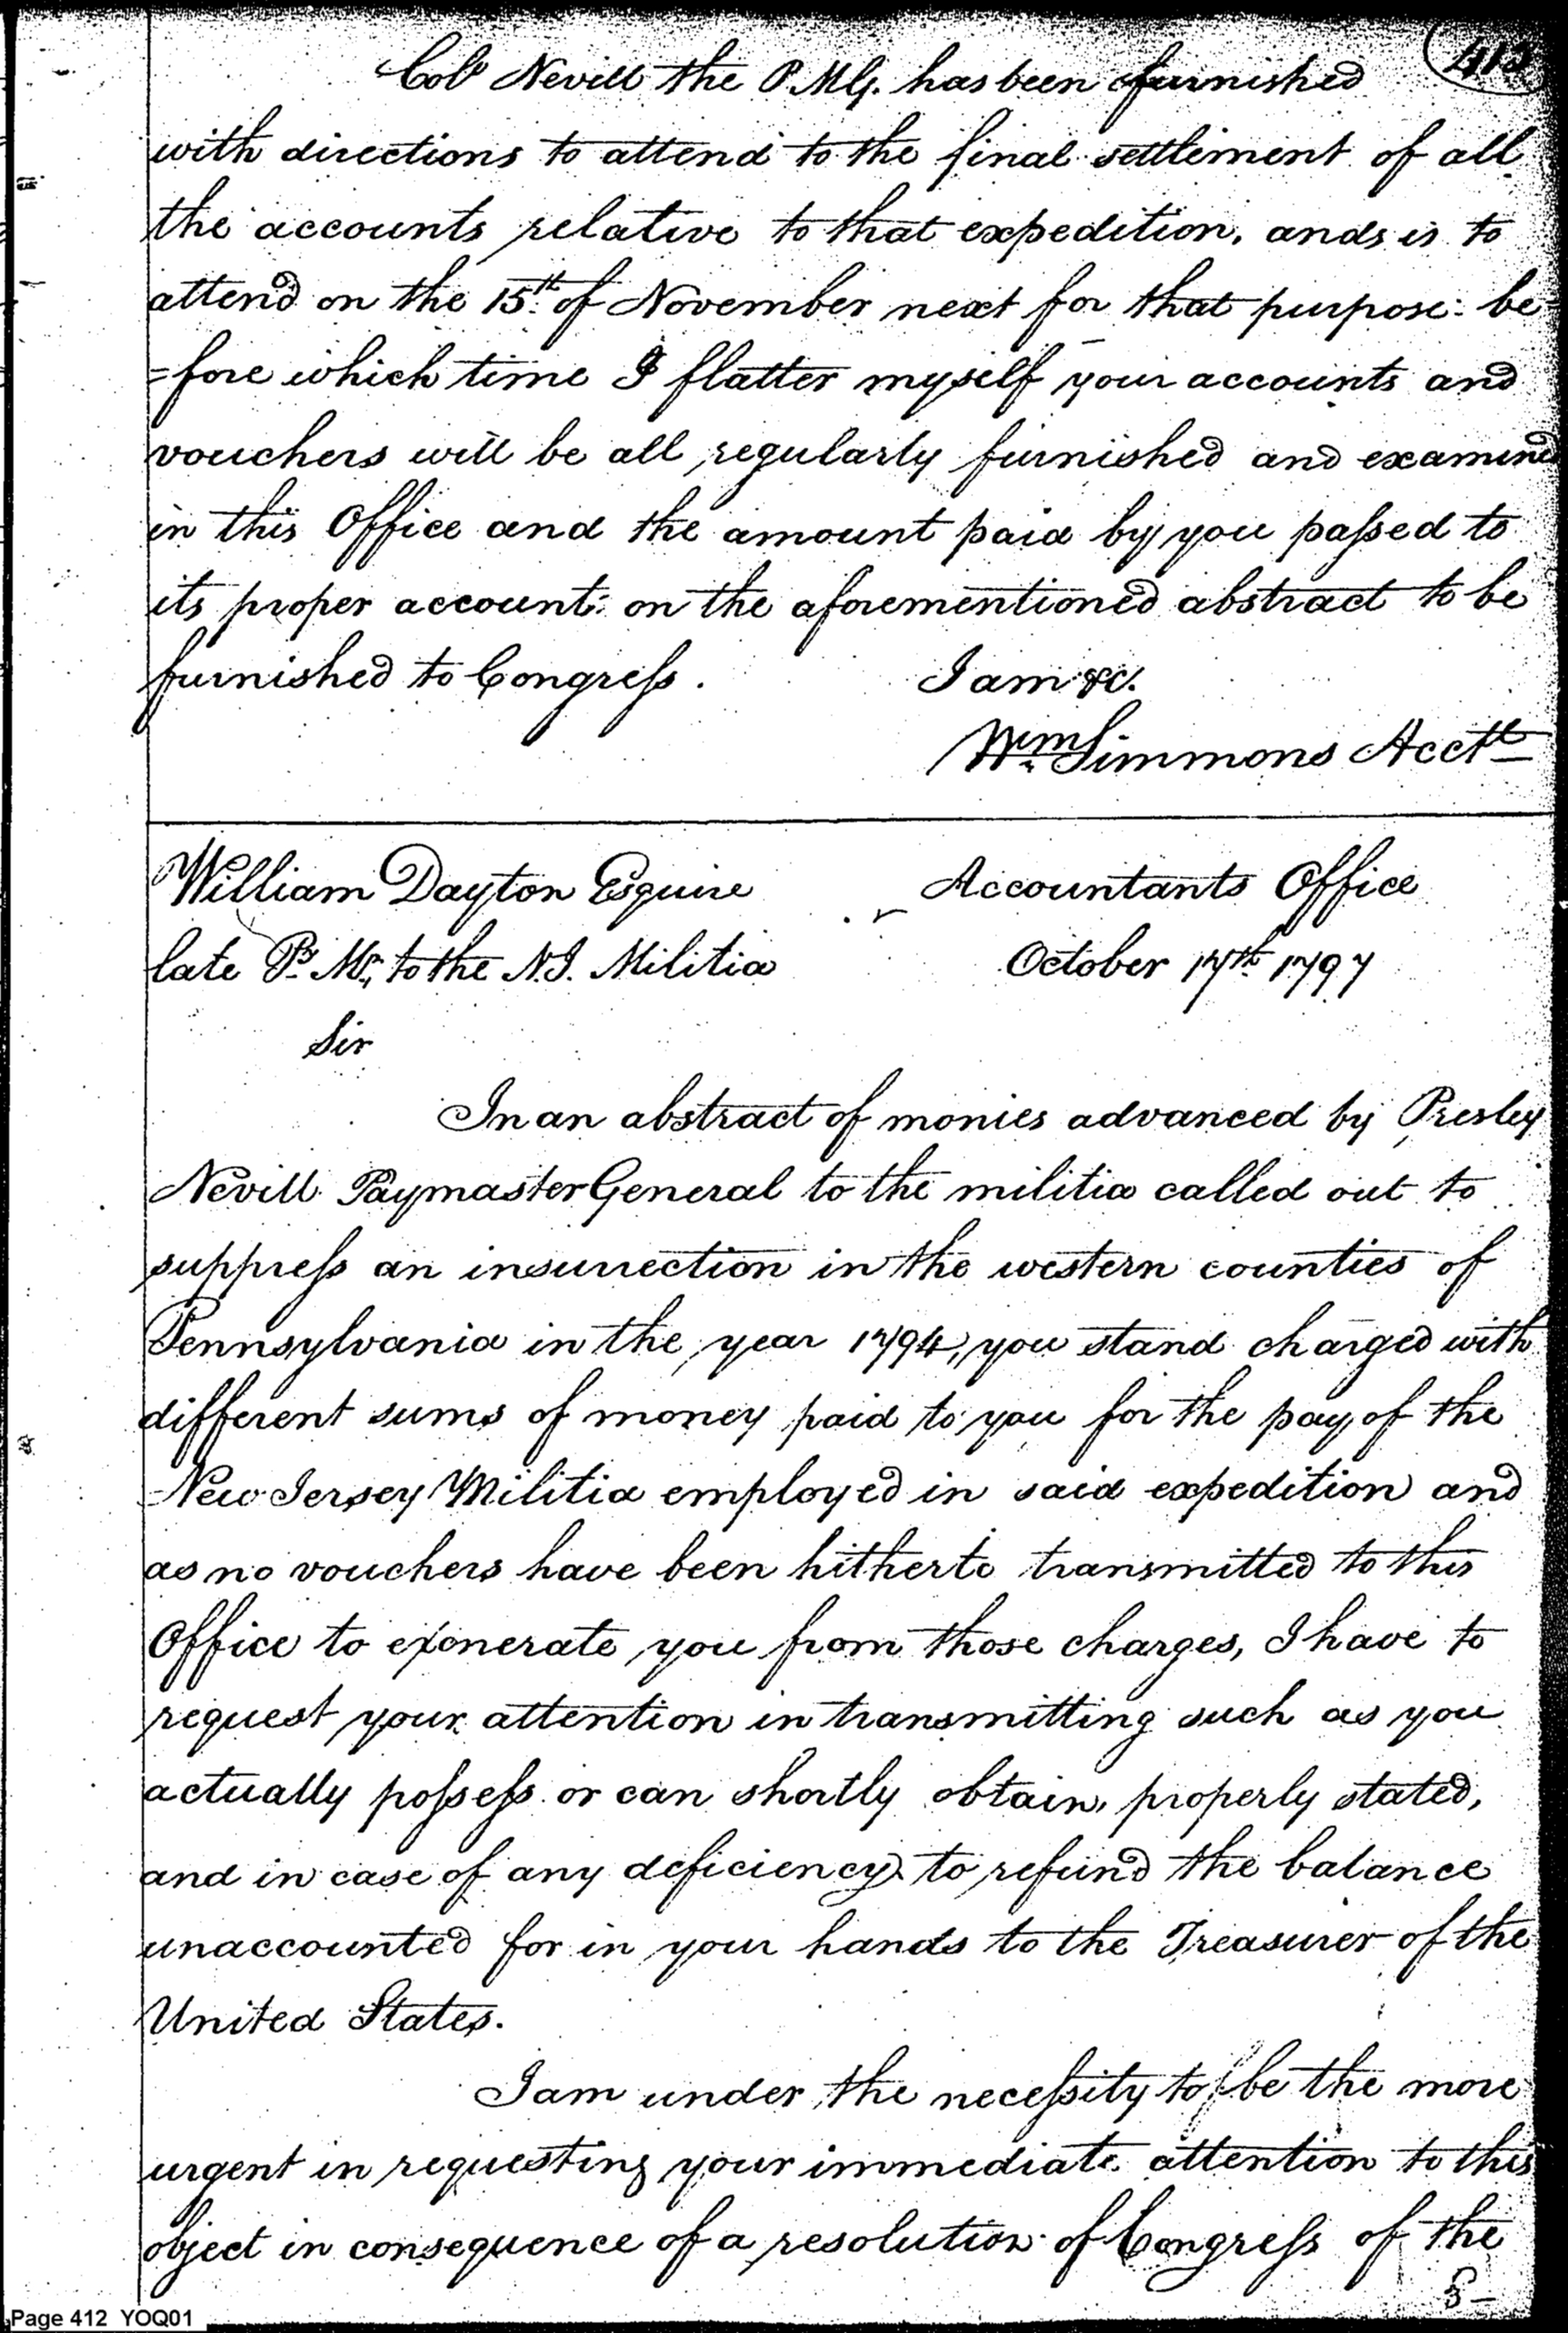 412
Colo Nevill the P.M.G. has been furnished
with directions to attend to the final settlement of all
the accounts relative to that expedition, and is to
attend on the 15th of November next for that purpose: be-
=fore which time I flatter myself your accounts and
vouchers will be all regularly furnished and examined
in this Office and the amount paid by you passed to
its proper account: on the aforementioned abstract to be
furnished to Congress.
I am &c.
Wm Simmons Acctt
William Dayton Esquire
late P. Mr. to the N.J. Militia
Accountants Office
October 17th 1797
Sir
In an abstract of monies advanced by Presley
Nevill Paymaster General to the militia called out to
suppress an insurrection in the western counties of
Pennsylvania in the year 1794, you stand charged with
different sums of money paid to you for the pay of the
New Jersey Militia employed in said expedition and
as no vouchers have been hitherto transmitted to this
Office to exonerate you from those charges, I have to
request your attention in transmitting such as you
actually possess or can shortly obtain, properly stated,
and in case of any deficiency to refund the balance
unaccounted for in your hands to the Treasurer of the
United States.
I am under the necessity to be the more
urgent in requesting your immediate attention to this
object in consequence of a resolution of Congress of the
Page 412 YOQ01